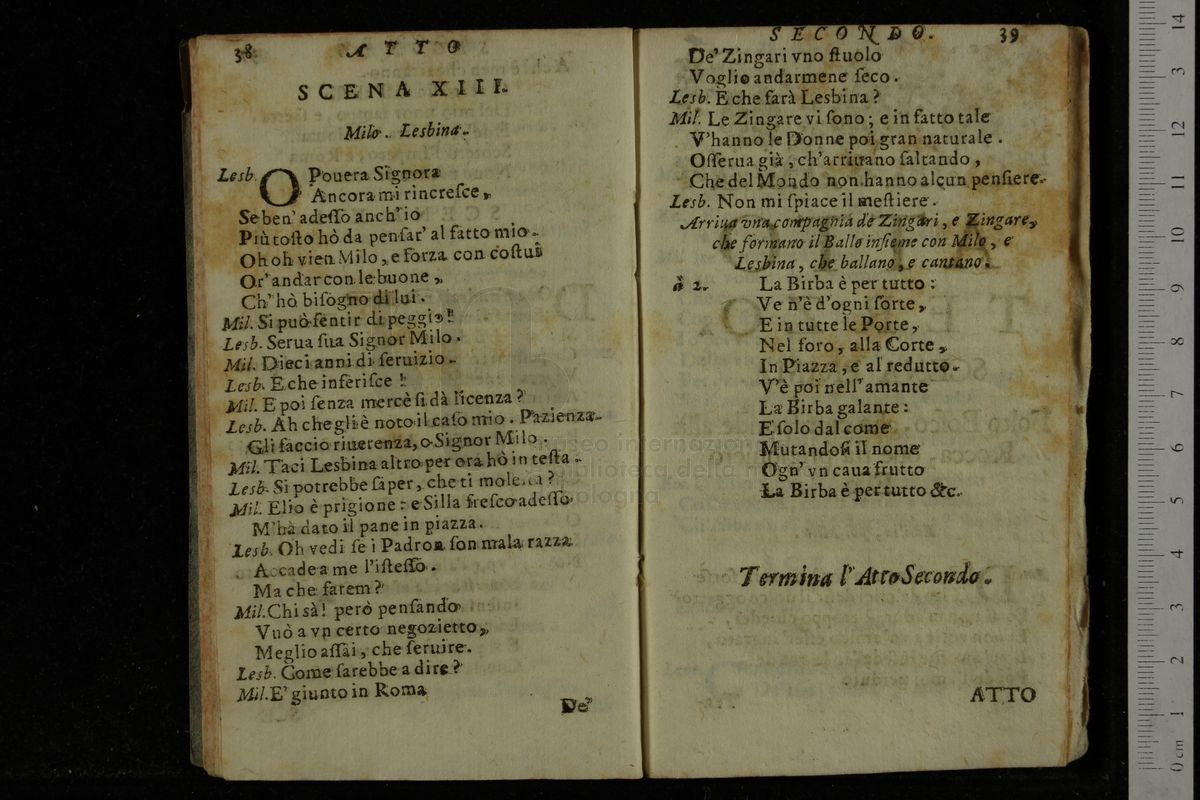 38 ATTO
SCENA XIII.
Milo. Lesbina.
Lesb. O Pouera Signora
Ancora mi rincreſce,
Se ben' adeſſo anch' io
Più toſto hò da penſar' al fatto mio.
Oh oh vien Milo, e forza con coſtui
Or' andar con le buone,
Ch' hò biſogno di lui.
Mil. Si può ſentir di peggio!
Lesb. Serua ſua Signor Milo.
Mil. Dieci anni di ſeruizio.
Lesb. E che inferiſce!
Mil. E poi ſenza mercè ſi dà licenza?
Lesb. Ah che gli è noto il caſo mio. Pazienza.
Gli faccio riuerenza, o Signor Milo.
Mil. Taci Lesbina altro per ora hò in teſta.
Lesb. Si potrebbe ſaper, che ti moleſta?
Mil. Elio è prigione: e Silla freſco adeſſo
M'hà dato il pane in piazza.
Lesb. Oh vedi ſe i Padron ſon mala razza
Accade a me l'iſteſſo.
Ma che farem?
Mil. Chi sà! però penſando
Vuò a vn certo negozietto,
Meglio aſſai, che ſeruire.
Lesb. Come ſarebbe a dire?
Mil. E' giunto in Roma
De'
SECONDO. 39
De' Zingari vno ſtuolo
Voglio andarmene ſeco.
Lesb. E che farà Lesbina?
Mil. Le Zingare vi ſono; e in fatto tale
V'hanno le Donne poi gran naturale.
Oſſerua già, ch'arriuano ſaltando,
Che del Mondo non hanno alcun penſiere.
Lesb. Non mi ſpiace il meſtiere.
Arriua vna compagnia de Zingari, e Zingare,
che formano il Ballo inſieme con Milo, e
Lesbina, che ballano, e cantano.
à 2. La Birba è per tutto:
Ve n'è d'ogni ſorte,
E in tutte le Porte,
Nel foro, alla Corte,
In Piazza, e al redutto.
V'è poi nell' amante
La Birba galante:
E ſolo dal come
Mutandoſi il nome
Ogn' vn caua frutto
La Birba è per tutto &c.
Termina l'Atto Secondo.
ATTO
museo internazionale
biblioteca della musica
bologna
0 cm 1 2 3 4 5 6 7 8 9 10 11 12 13 14